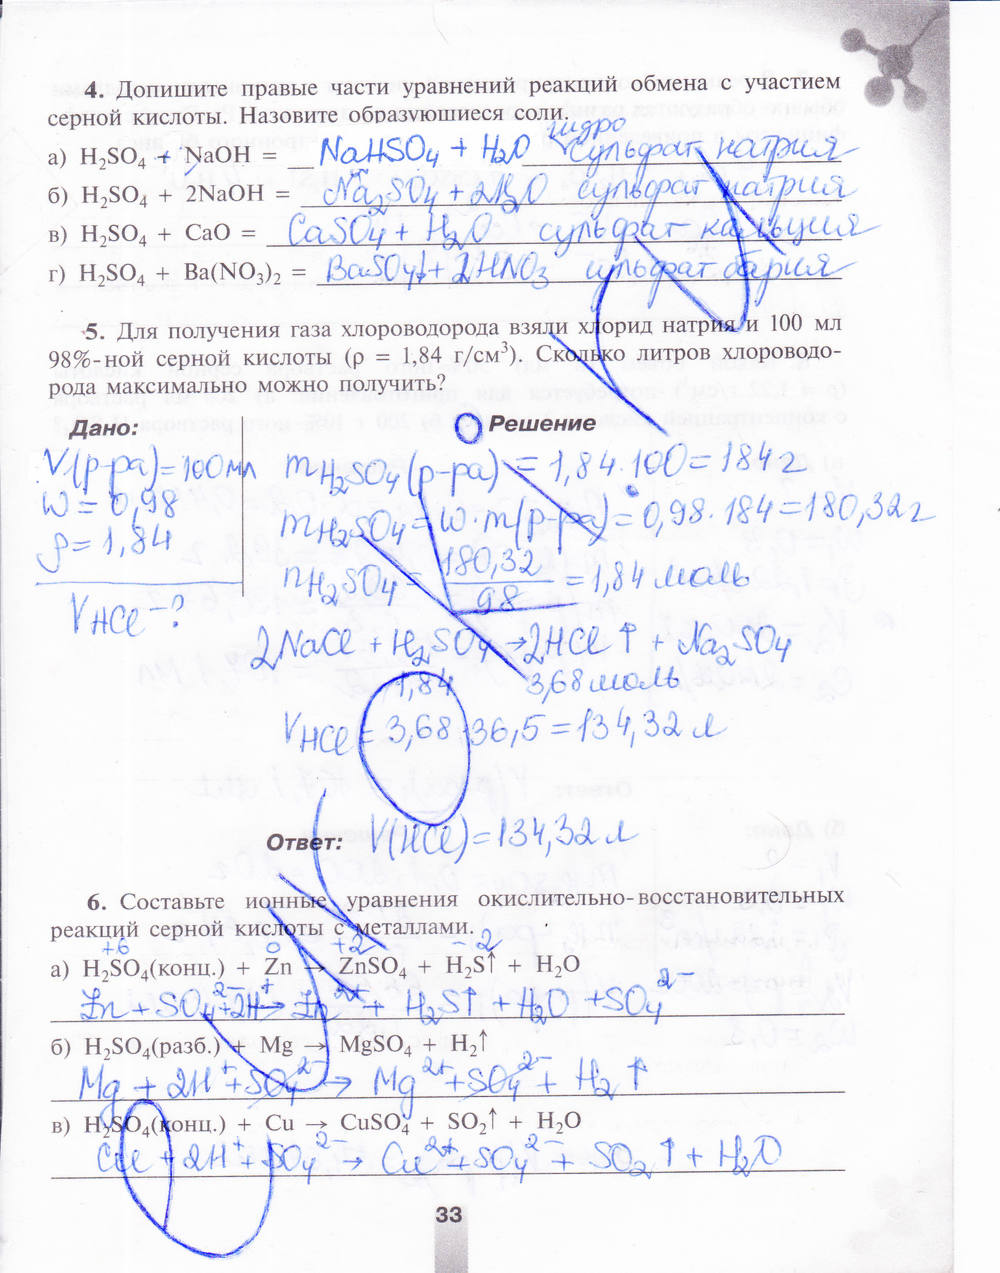 4. Допишите правые части уравнений реакций обмена с участием
серной кислоты. Назовите образующиеся соли.
гидро
а) H₂SO₄ + NaOH = NaHSO₄ + H₂O сульфат натрия
б) H₂SO₄ + 2NaOH = Na₂SO₄ + 2H₂O сульфат натрия
в) H₂SO₄ + CaO = CaSO₄ + H₂O сульфат кальция
г) H₂SO₄ + Ba(NO₃)₂ = BaSO₄↓ + 2HNO₃ сульфат бария
5. Для получения газа хлороводорода взяли хлорид натрия и 100 мл
98%-ной серной кислоты (ρ = 1,84 г/см³). Сколько литров хлороводо-
рода максимально можно получить?
Дано:
V(р-ра) = 100 мл
w = 0,98
ρ = 1,84
V HCl – ?
Решение
m H₂SO₄ (р-ра) = 1,84 · 100 = 184 г
m H₂SO₄ = w · m(р-ра) = 0,98 · 184 = 180,32 г
n H₂SO₄ = 180,32 / 98 = 1,84 моль
2NaCl + H₂SO₄ → 2HCl ↑ + Na₂SO₄
1,84 3,68 моль
V HCl = 3,68 · 36,5 = 134,32 л
Ответ: V(HCl) = 134,32 л
6. Составьте ионные уравнения окислительно-восстановительных
реакций серной кислоты с металлами.
+6 0 +2 -2
а) H₂SO₄(конц.) + Zn → ZnSO₄ + H₂S↑ + H₂O
Zn + SO₄²⁻ + 2H⁺ → Zn²⁺ + H₂S↑ + H₂O + SO₄²⁻
б) H₂SO₄(разб.) + Mg → MgSO₄ + H₂↑
Mg + 2H⁺ + SO₄²⁻ → Mg²⁺ + SO₄²⁻ + H₂ ↑
в) H₂SO₄(конц.) + Cu → CuSO₄ + SO₂↑ + H₂O
Cu + 2H⁺ + SO₄²⁻ → Cu²⁺ + SO₄²⁻ + SO₂ ↑ + H₂O
33